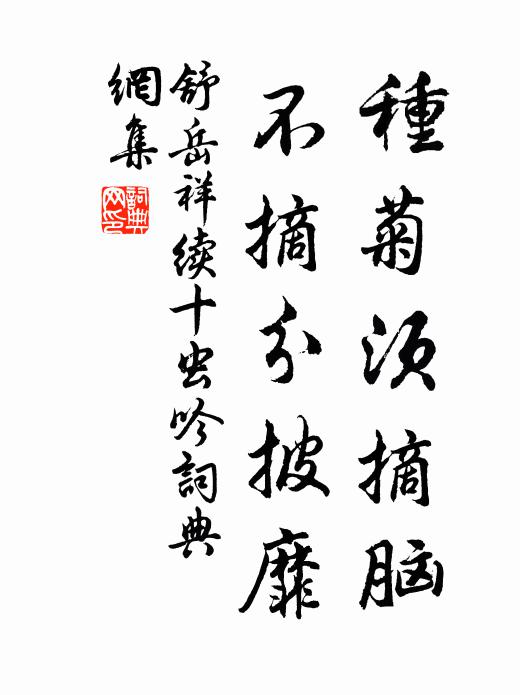 種菊須摘脑
不摘分披靡
舒岳祥续十虫吟詞典
網集
詞典网印